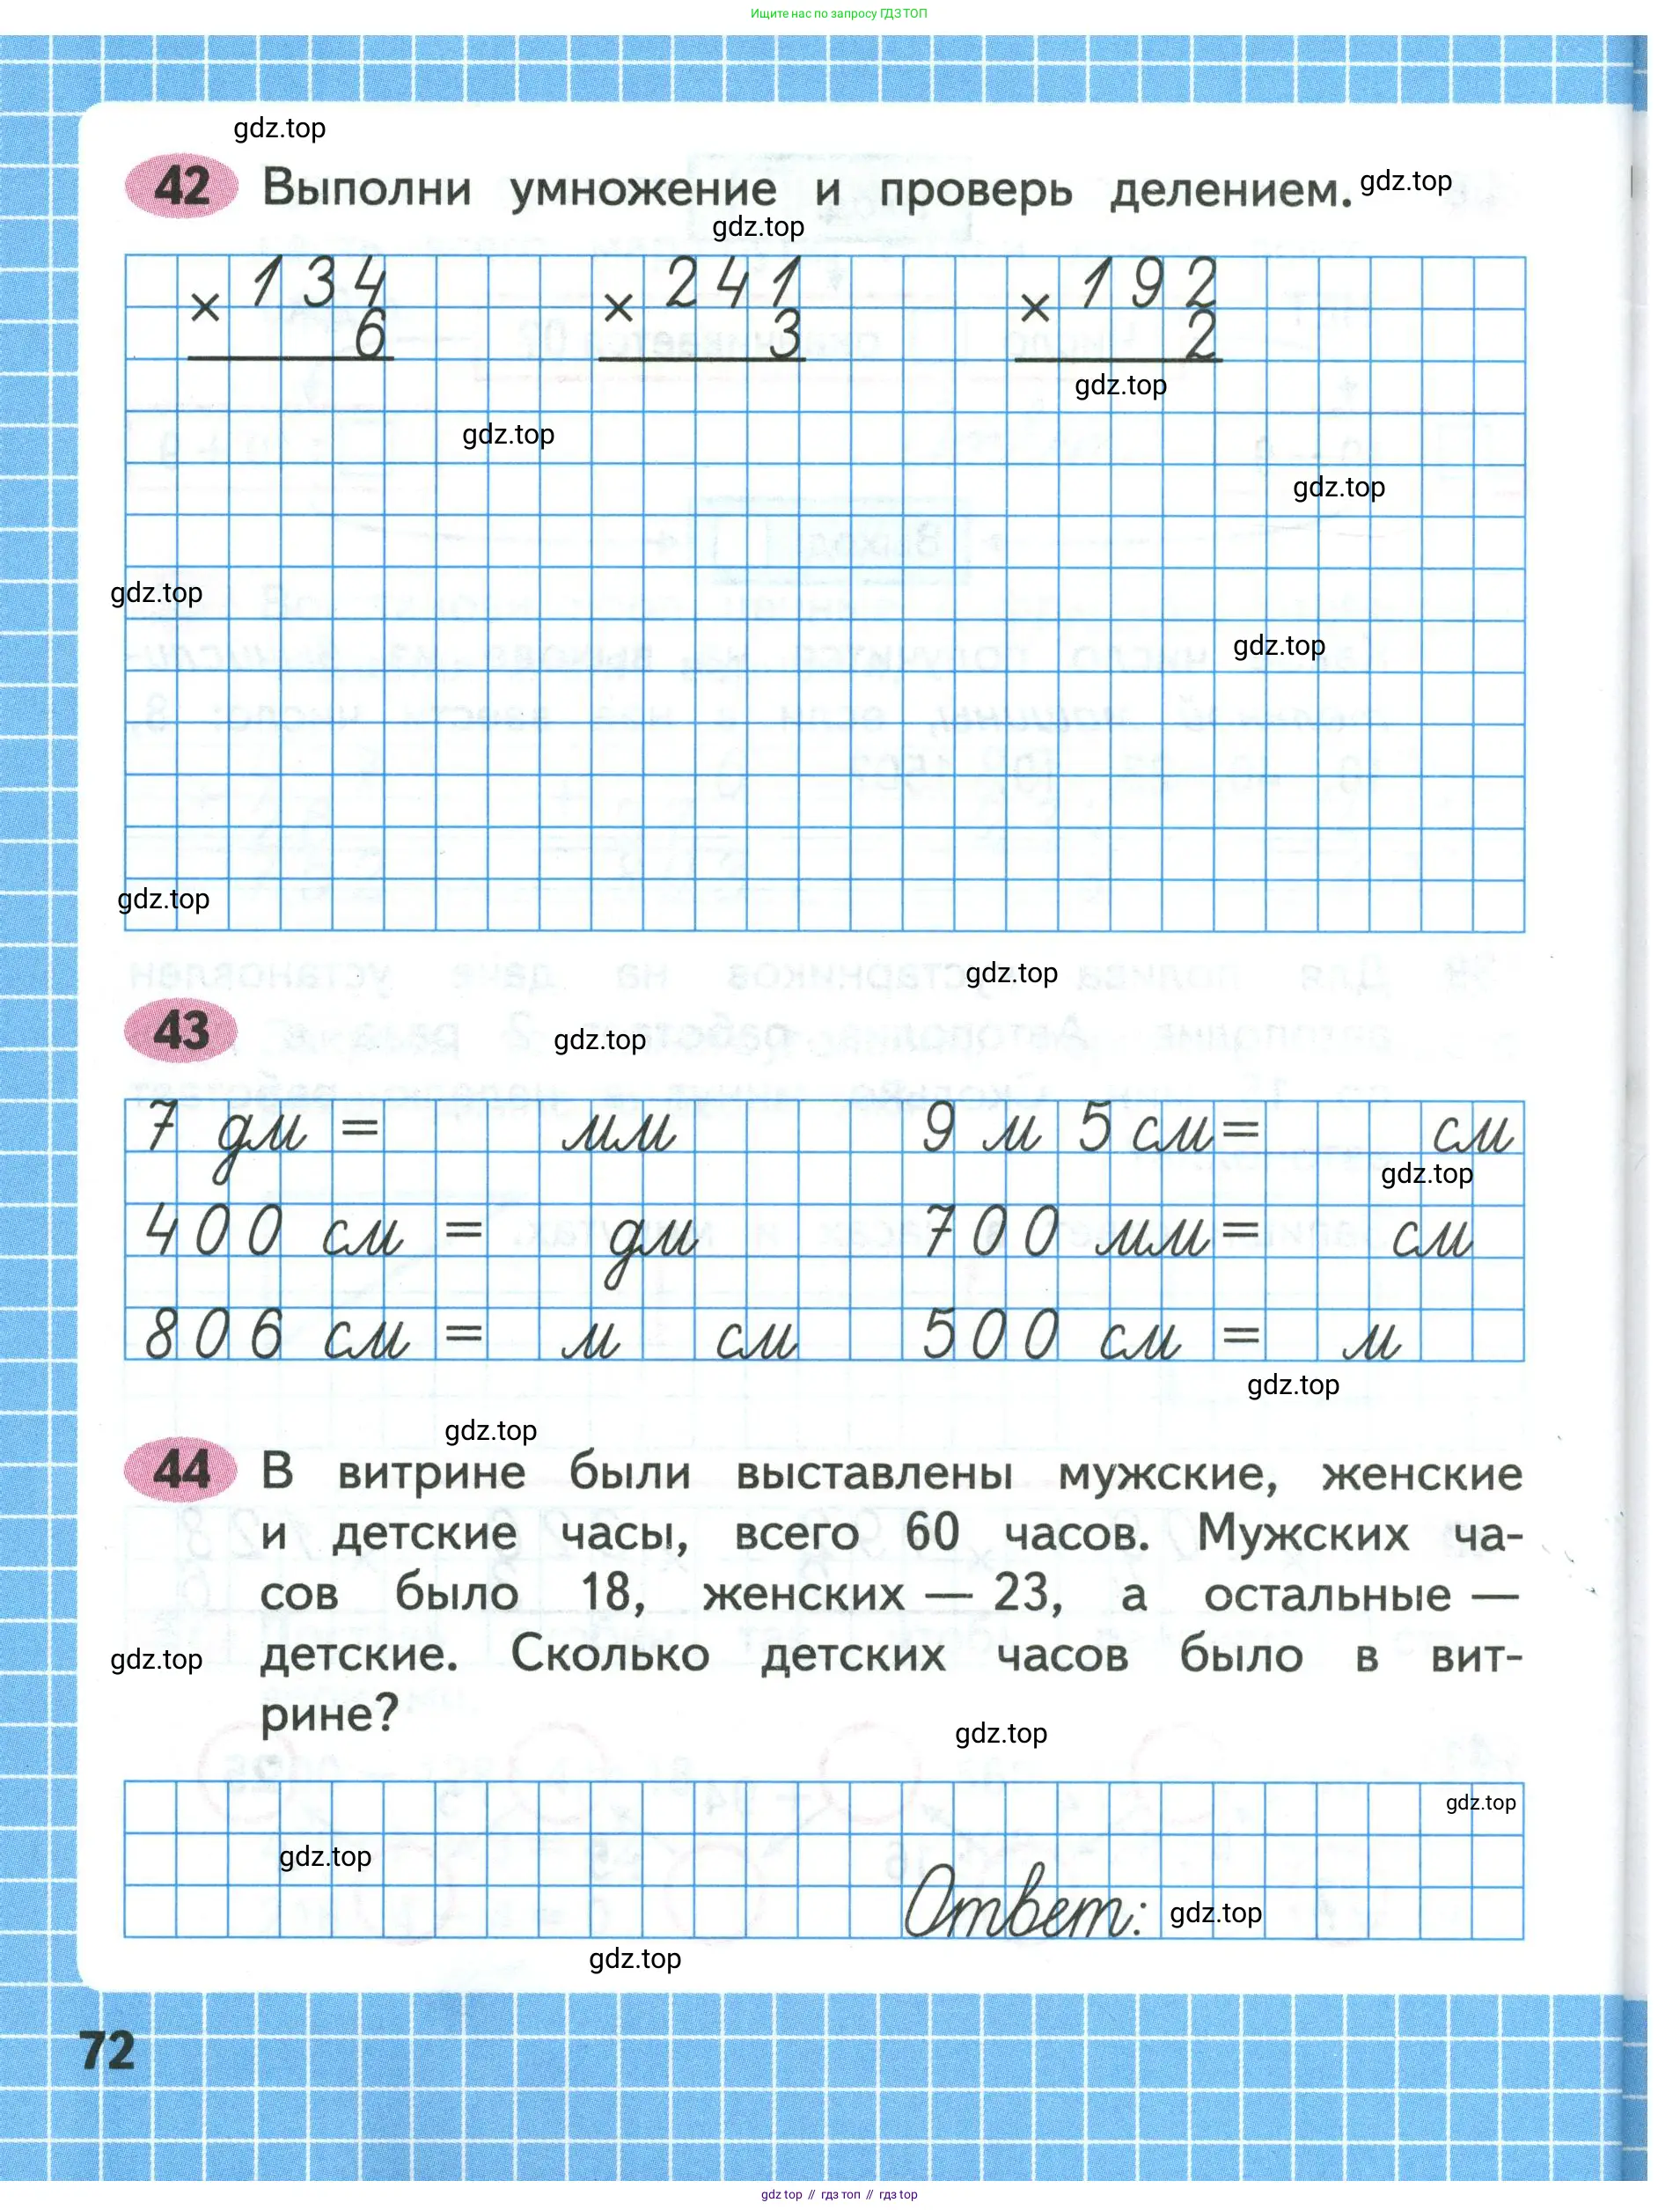 Ищите нас по запросу ГДЗ ТОП
gdz.top
42 Выполни умножение и проверь делением. gdz.top
gdz.top
× 134 × 241 × 192
6 3 2
gdz.top
gdz.top
gdz.top
gdz.top
gdz.top
gdz.top
gdz.top
43 gdz.top
7 дм = мм 9 м 5 см = см
gdz.top
400 см = дм 700 мм = см
806 см = м см 500 см = м
gdz.top
gdz.top
44 В витрине были выставлены мужские, женские
и детские часы, всего 60 часов. Мужских ча-
сов было 18, женских — 23, а остальные —
gdz.top детские. Сколько детских часов было в вит-
рине?
gdz.top
gdz.top
gdz.top
Ответ: gdz.top
gdz.top
72
gdz top // гдз топ // гдз top